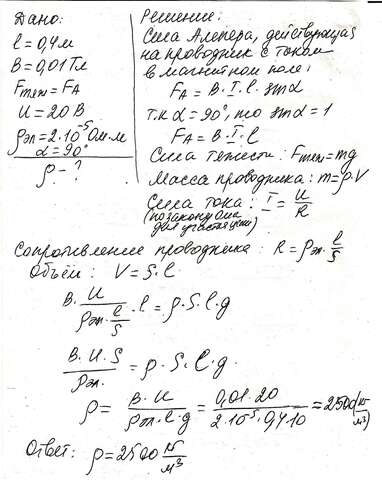 Дано:
l = 0,4 м
B = 0,01 Тл
Fтяж = FA
U = 20 В
ρэл = 2·10⁻⁵ Ом·м
α = 90°
ρ - ?
Решение:
Сила Ампера, действующая
на проводник с током
в магнитном поле:
FA = B·I·l·sinα
т.к α = 90°, то sinα = 1
FA = B·I·l
Сила тяжести: Fтяж = mg
Масса проводника: m = ρ·V
Сила тока: I = U/R
(по закону Ома
для участка цепи)
Сопротивление проводника: R = ρэл · l/S
Объём: V = S·l
B·U/(ρэл·l/S) · l = ρ·S·l·g
B·U·S/ρэл. = ρ·S·l·g
ρ = B·U/(ρэл·l·g) = 0,01·20/(2·10⁻⁵·0,4·10) = 2500 (кг/м³)
Ответ: ρ = 2500 кг/м³